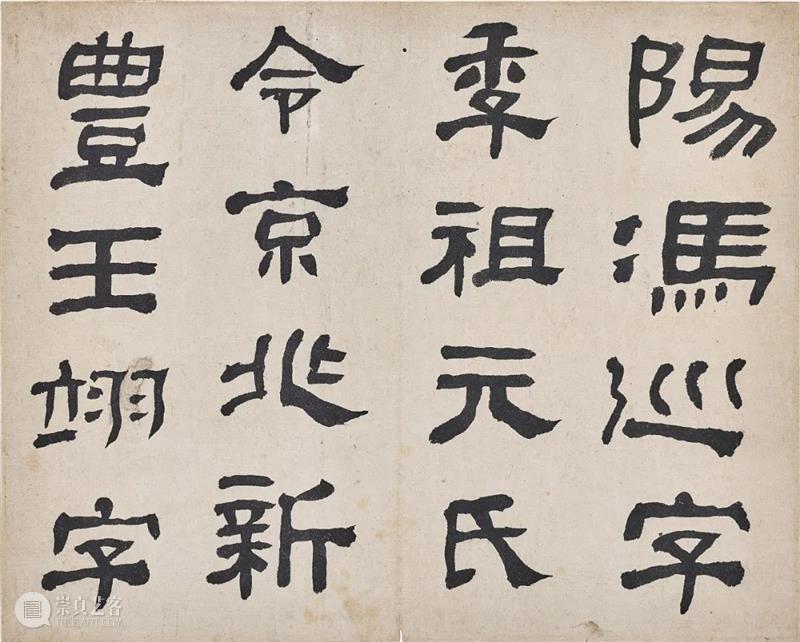 陽馮巡字
季祖元氏
令京兆新
豊王翊字
崇真艺客